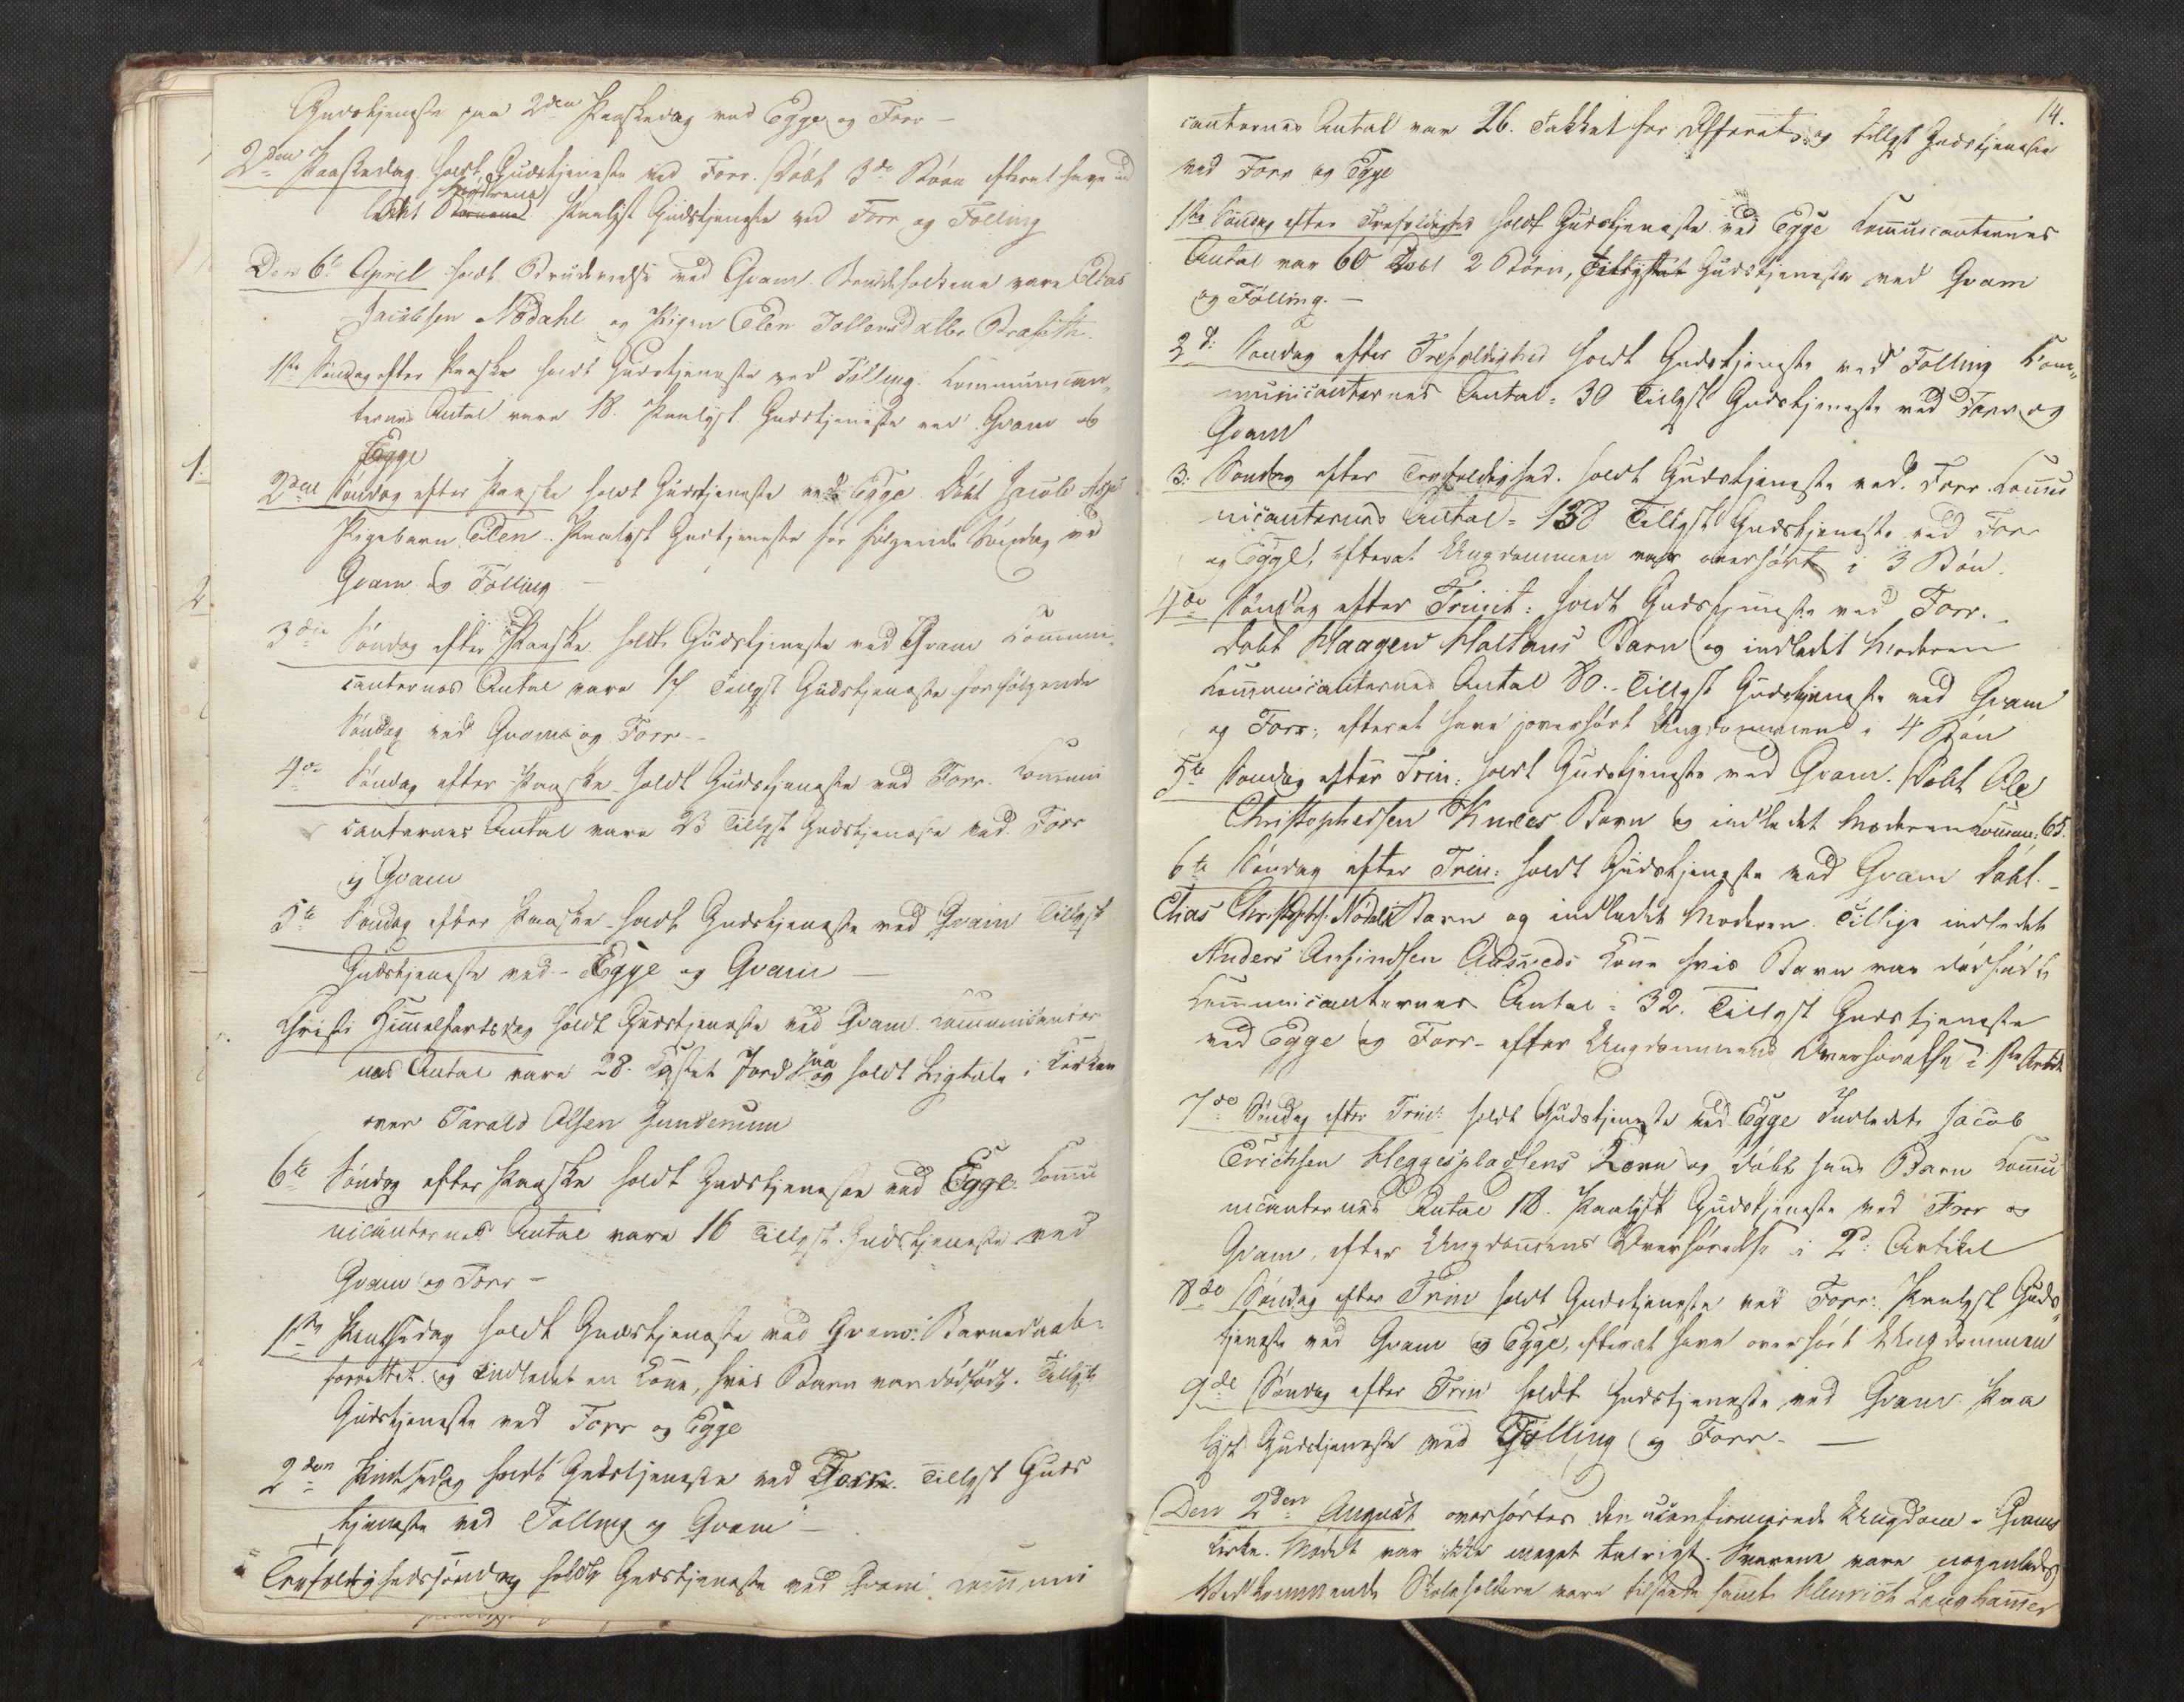 Gudstjeneste paa 2den Paaskedag ved Egge og Forr –
2den Paaskedag holdt Gudstjeneste ved Forr. Døbt 3de Børn efterat have ind
ledet Mødrene. Paalyst Gudstjeneste ved Forr og Følling
Den 6te April holdt Brudevielse ved Qvam. Brudefolkene vare Elias
Jacobsen Nødahl og Pigen Elen Tollensdatter
1ste Søndag efter Paaske holdt Gudstjeneste ved Følling. Communican-
ternes Antal vare 18. Paalyst Gudstjeneste ved Qvam og
Egge
1.
2den Søndag efter Paaske holdt Gudstjeneste ved Egge. Døbt Jacob
Pigebarn Elen. Paalyst Gudstjeneste for følgende Søndag ved
Qvam og Følling –
2
3die Søndag efter Paaske holdt Gudstjeneste ved Qvam Communi-
canternes Antal vare 17 Tillyst Gudstjeneste for følgende
Søndag ved Qvam og Forr –
4de Søndag efter Paaske holdt Gudstjeneste ved Forr. Communi
canternes Antal vare 23 Tillyst Gudstjeneste ved Forr
og Qvam
5te Søndag efter Paaske holdt Gudstjeneste ved Qvam Tillyst
Gudstjeneste ved Egge og Qvam –
Christi Himmelfartsdag holdt Gudstjeneste ved Qvam. Communicanter
nes Antal vare 28. Kastet Jord paa og holdt Ligtale i Kirken
over Tarald Olsen
6te Søndag efter Paaske holdt Gudstjeneste ved Egge. Commu
nicanternes Antal vare 16 Tillyst Gudstjeneste ved
Qvam og Forr –
1ste Pintsedag holdt Gudstjeneste ved Qvam. Barnedaab
forrettet og indledet en Kone, hvis Barn var dødfødt. Tillyst
Gudstjeneste ved Forr og Egge
2den Pintsedag holdt Gudstjeneste ved Forr. Tillyst Guds
tjeneste ved Følling og Qvam –
Trefoldighedssøndag holdt Gudstjeneste ved Qvam Communi
14.
canternes Antal var 26. Takket for Offeret og tillyst Gudstjeneste
ved Forr og Egge
1ste Søndag efter Trefoldighed holdt Gudstjeneste ved Egge Communicanternes
Antal var 60 Døbt 2 Børn, tillyst Gudstjeneste ved Qvam
og Følling. –
2d: Søndag efter Trefoldighed holdt Gudstjeneste ved Følling Com-
municanternes Antal = 30 Tillyst Gudstjeneste ved Forr og
Qvam
3. Søndag efter Trefoldighed. holdt Gudstjeneste ved Forr. Commu
nicanternes Antal = 138 Tillyst Gudstjeneste ved Forr
og Egge, efterat Ungdommen var overhørt i 3 Bøn.
4de Søndag efter Trinit: holdt Gudstjeneste ved Forr.
døbt Haagen Barn og indledet Moderen
Communicanternes Antal 80. Tillyst Gudstjeneste ved Qvam
og Forr, efterat have overhørt Ungdommen i 4 Bøn
5te Søndag efter Trin: holdt Gudstjeneste ved Qvam. Døbt Ole
Christophersen Barn og indledet Moderen Commun: 65.
6te Søndag efter Trin: holdt Gudstjeneste ved Qvam døbt
Elias Christophs. Nødals Barn og indledet Moderen. Tillige indledet
Anders Arfindsen Kone hvis Barn var dødfødt
Communicanternes Antal = 32. Tillyst Gudstjeneste
ved Egge og Forr – efter Ungdommens Overhørelse i 1ste Artik
7de Søndag efter Trin: holdt Gudstjeneste ved Egge Indledet Jacob
Erichsen Heggespladsens Kone og døbt hans Barn Commu
nicanternes Antal 18. Paalyst Gudstjeneste ved Forr og
Qvam, efter Ungdommens Overhørelse i 2d: Artikel
8de Søndag efter Trin holdt Gudstjeneste ved Forr. Paalyst Guds-
tjeneste ved Qvam og Egge, efterat have overhørt Ungdommen
9de Søndag efter Trin holdt Gudstjeneste ved Qvam Paa
lyst Gudstjeneste ved Følling og Forr. –
Den 2den August overhørtes den uconfirmerede Ungdom i Qvams
Kirke. Mødet var ikke meget talrigt. Svarene vare nogenlunde
Vedkommende Skoleholdere vare tilstede samt Henrich Langhammer